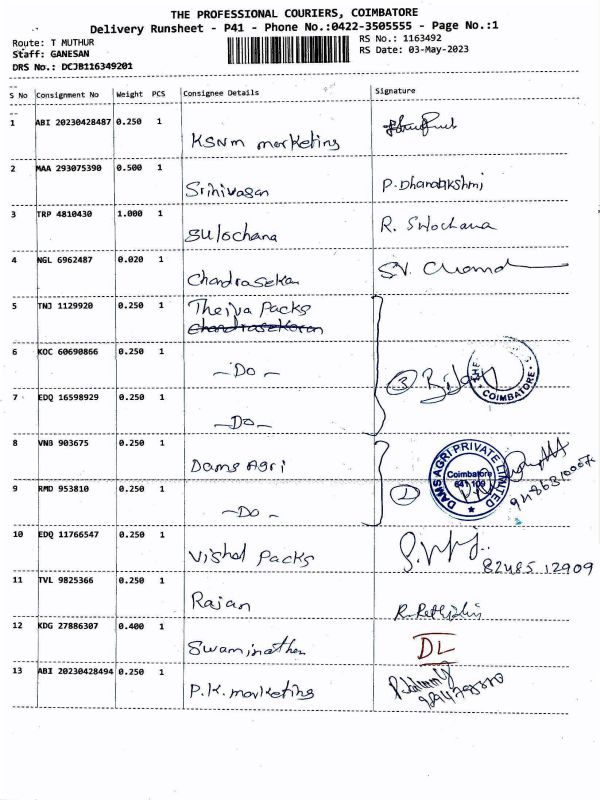 THE PROFESSIONAL COURIERS, COIMBATORE
Delivery Runsheet - P41 - Phone No.:0422-3505555 - Page No.:1
Route: T MUTHUR
Staff: GANESAN
DRS No.: DCJB116349201
RS No.: 1163492
RS Date: 03-May-2023
S No Consignment No Weight PCS Consignee Details Signature
1 ABI 20230428487 0.250 1
KSNM marketing
2 MAA 293075390 0.500 1
Srinivasan P. Dharabakshmi
3 TRP 4810430 1.000 1
Sulochana R. Sulochana
4 NGL 6962487 0.020 1
Chandrasekar S.V. Chand
5 TNJ 1129920 0.250 1
Theiva Packs
Chandrasekaran
6 KOC 60690866 0.250 1
-Do- 3
THE COIMBATORE.
7 EDQ 16598929 0.250 1
-Do-
8 VNB 903675 0.250 1
Dams Agri
DAMS AGRI PRIVATE LIMITED
Coimbatore
641 109
9 RMD 953810 0.250 1
-Do-
10 EDQ 11766547 0.250 1
Vishal Packs
82485 12909
11 TVL 9825366 0.250 1
Rajan
12 KDG 27886307 0.400 1
Swaminathan DL
13 ABI 20230428494 0.250 1
P.K. marketing